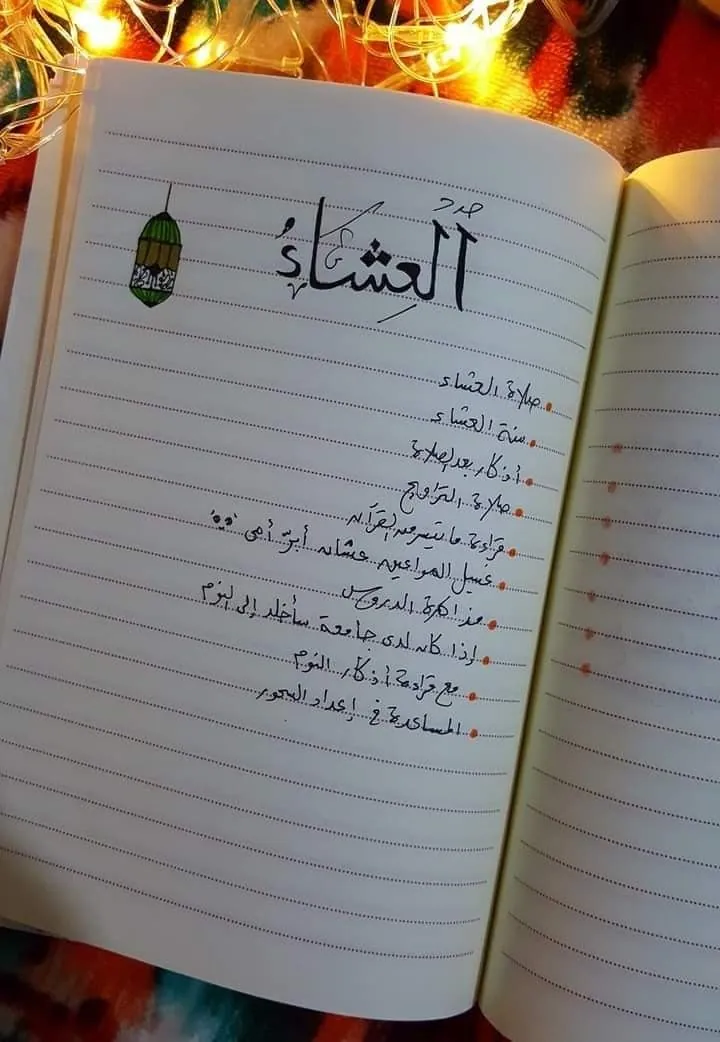 العِشَاءُ
صلاة العشاء
سنة العشاء
أذكار بعد الصلاة
صلاة التراويح
قراءة ما تيسر من القرآن
غسيل المواعين عشان أبرّ أمي
مذاكرة الدروس
إذا كان لدي جامعة سأخلد إلى النوم
مع قراءة أذكار النوم
المساعدة في إعداد السحور